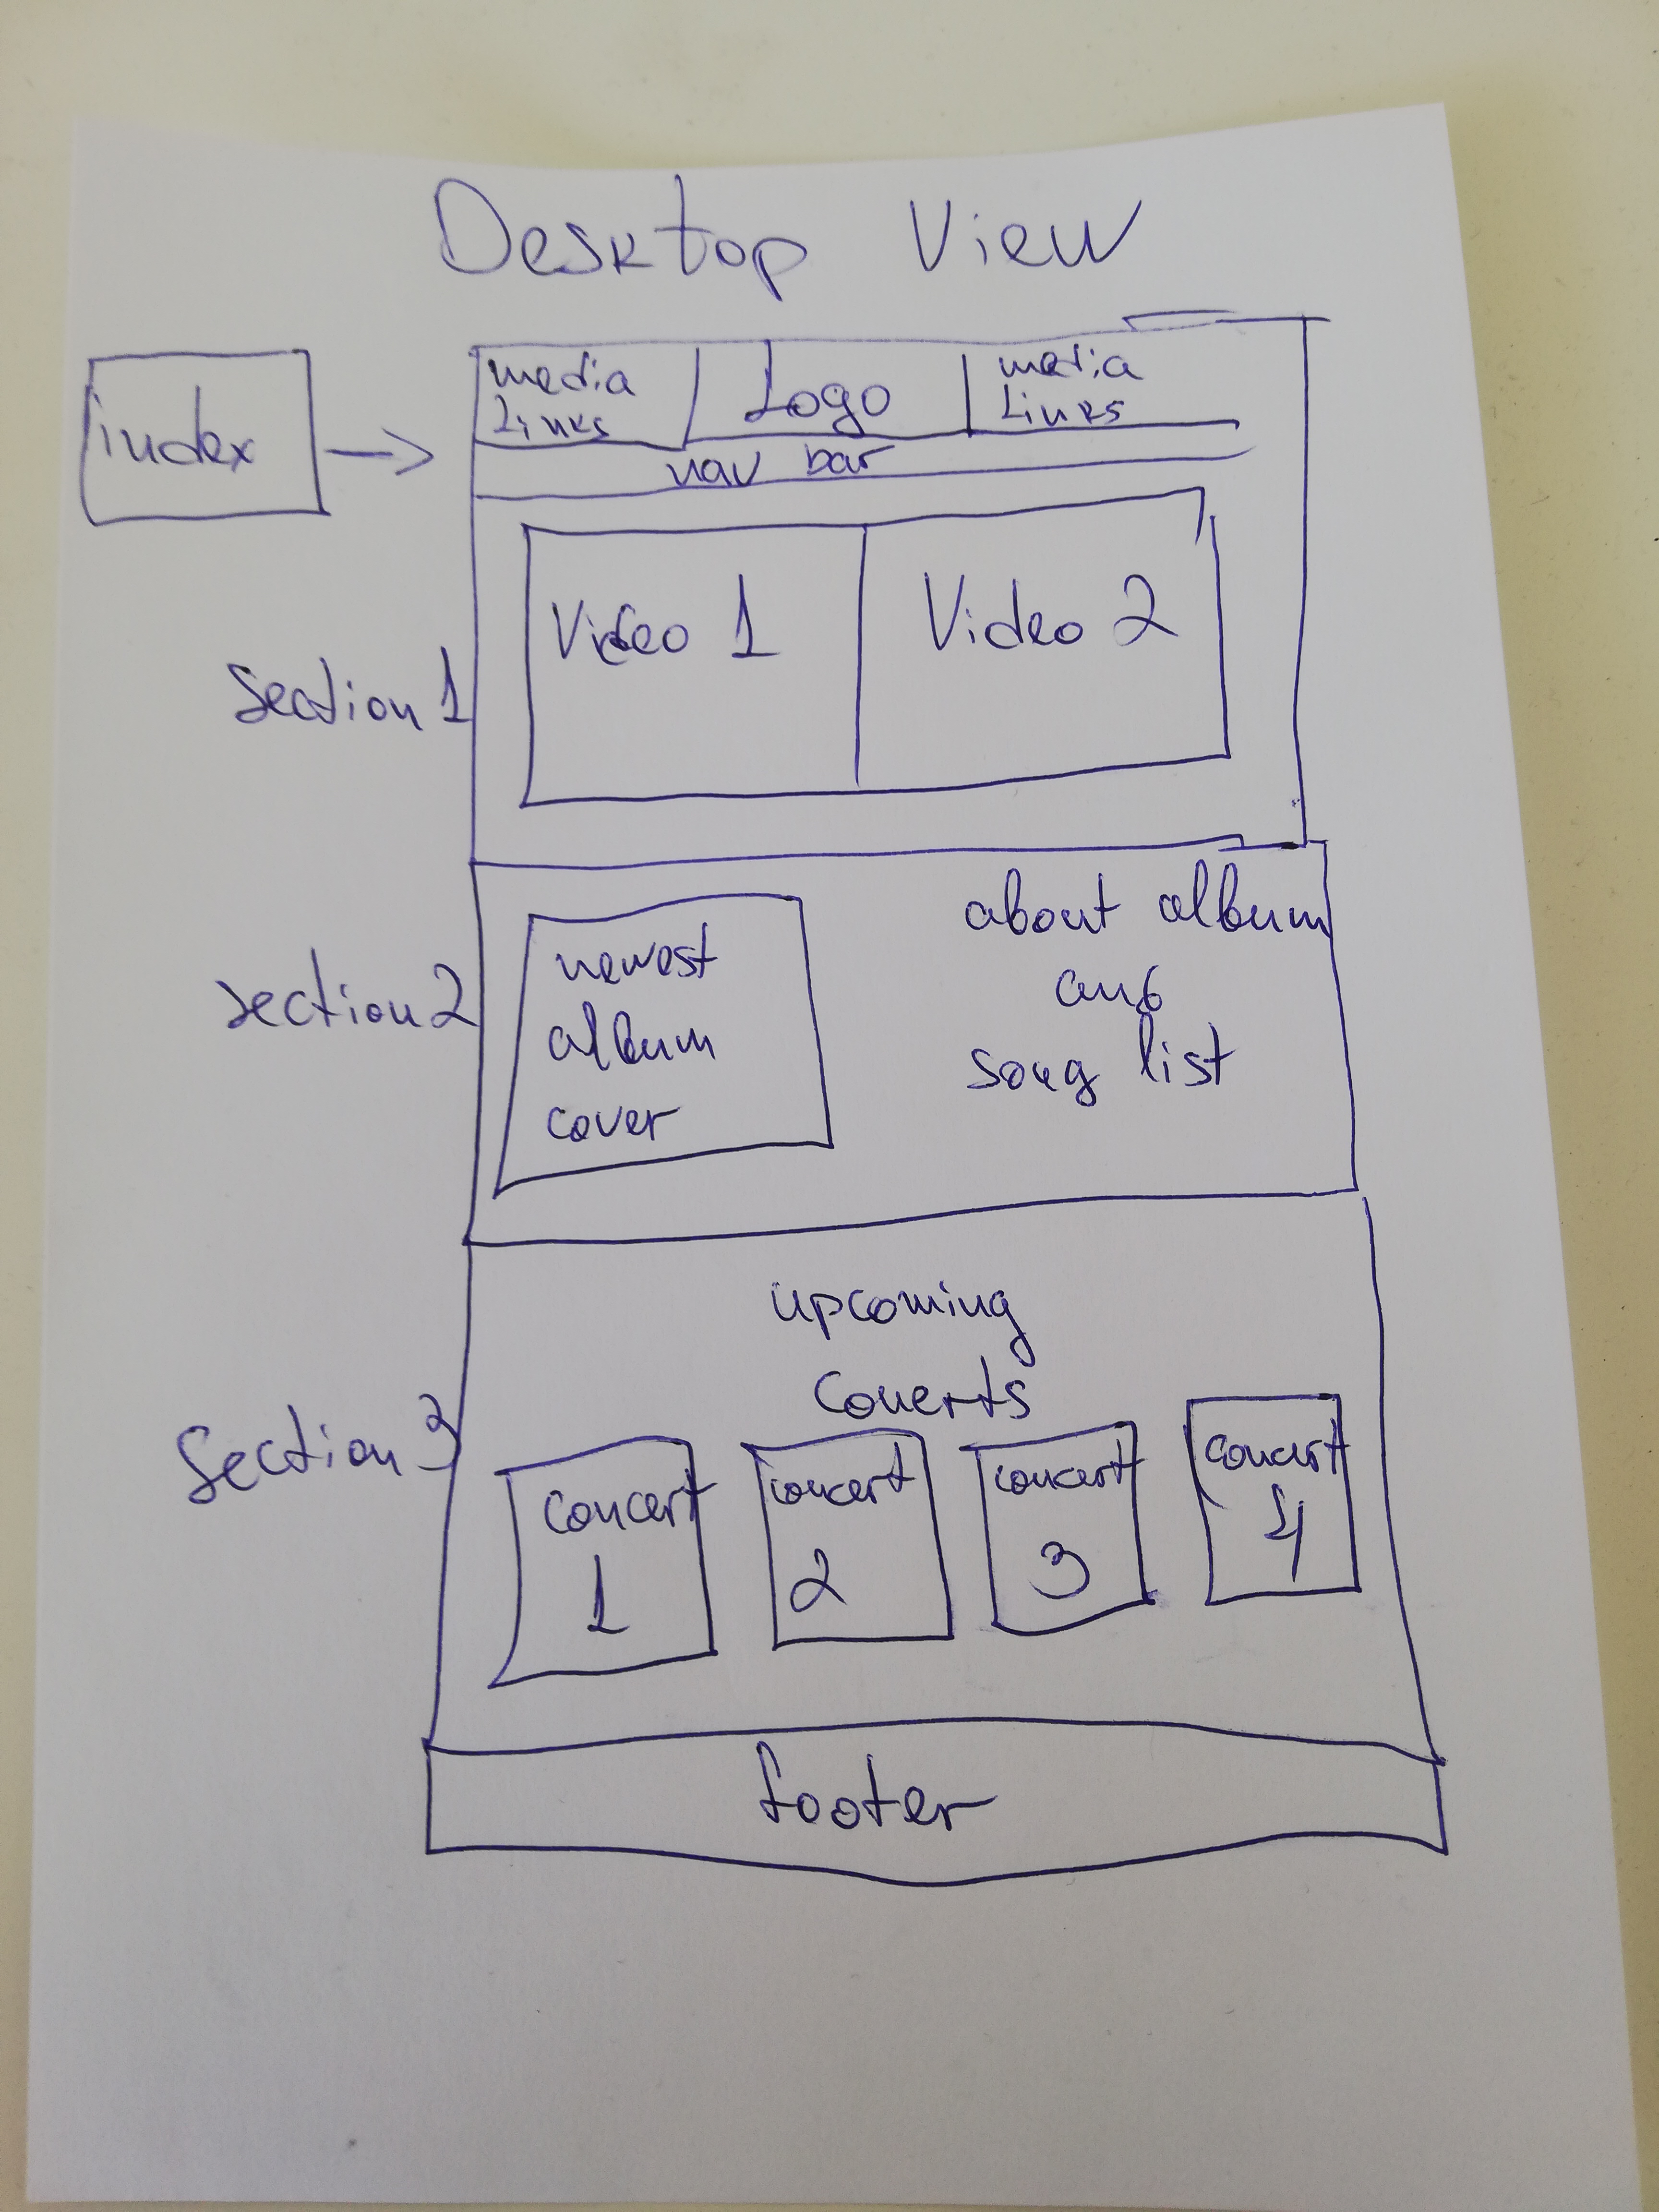 Desktop View
index
media
Links
Logo
media
Links
nav bar
Section 1
Video 1
Video 2
Section 2
newest
album
cover
about album
and
song list
upcoming
Conerts
Section 3
concert
1
concert
2
concert
3
concert
4
footer